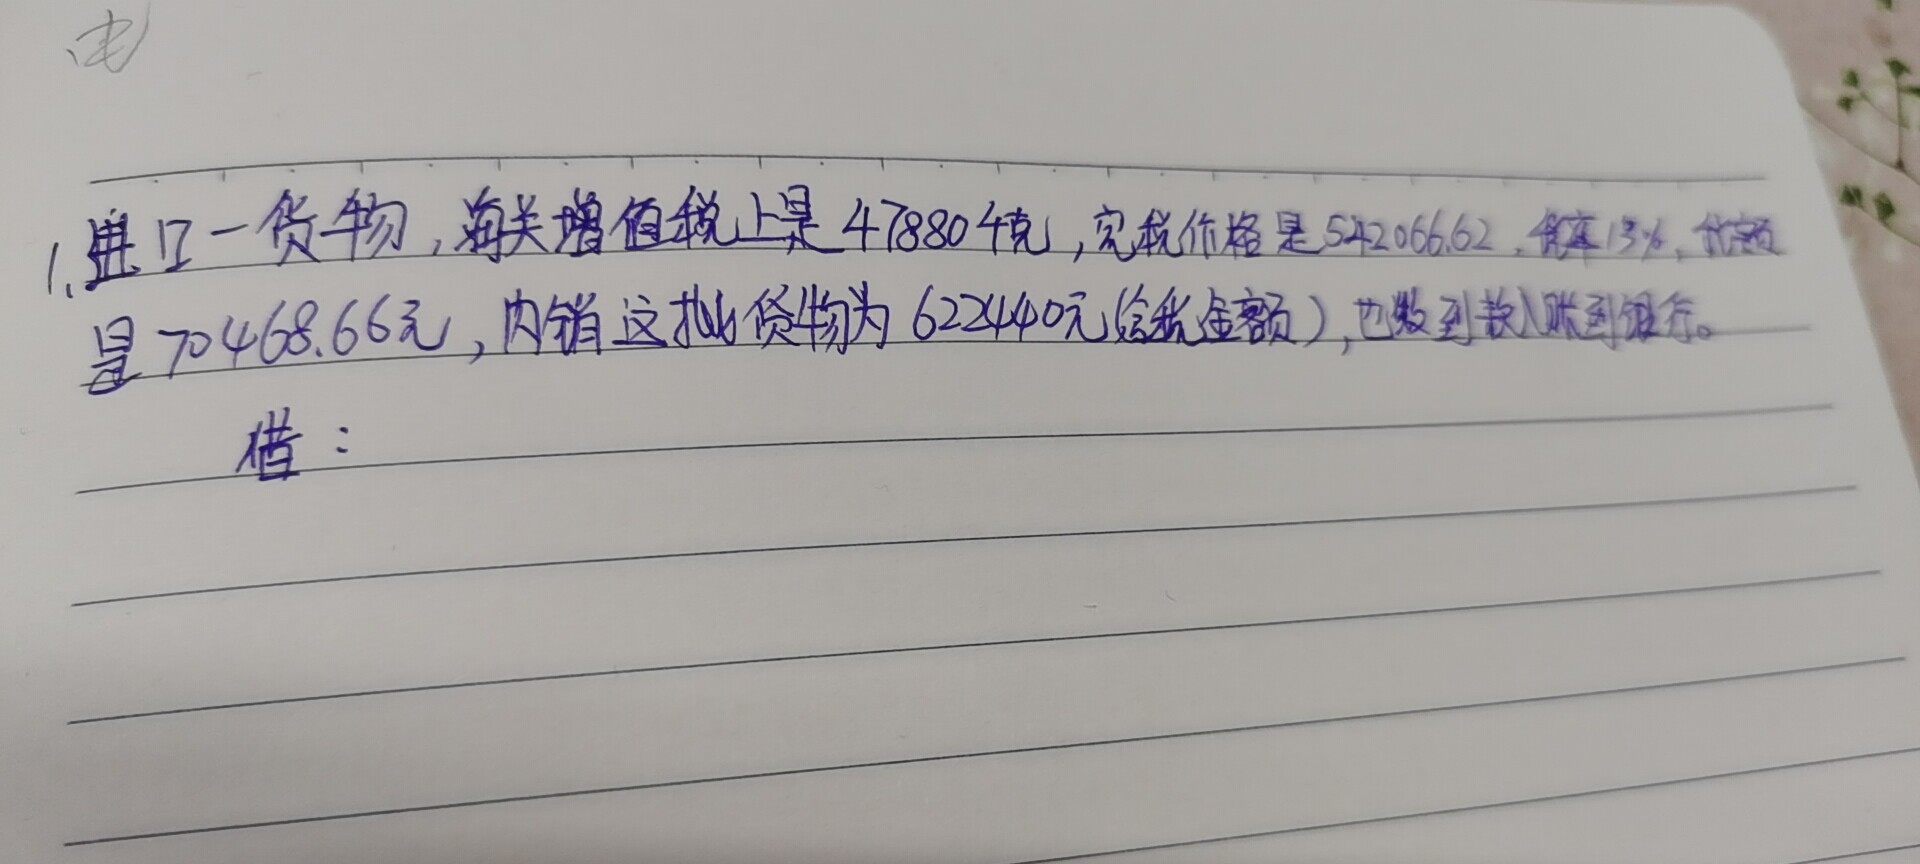 1.进口一货物,海关增值税上是478804克,完税价格是542066.62,税率13%,税额
是70468.66元,内销这批货物为622440元(含税金额),也收到款入账到银行。
借: